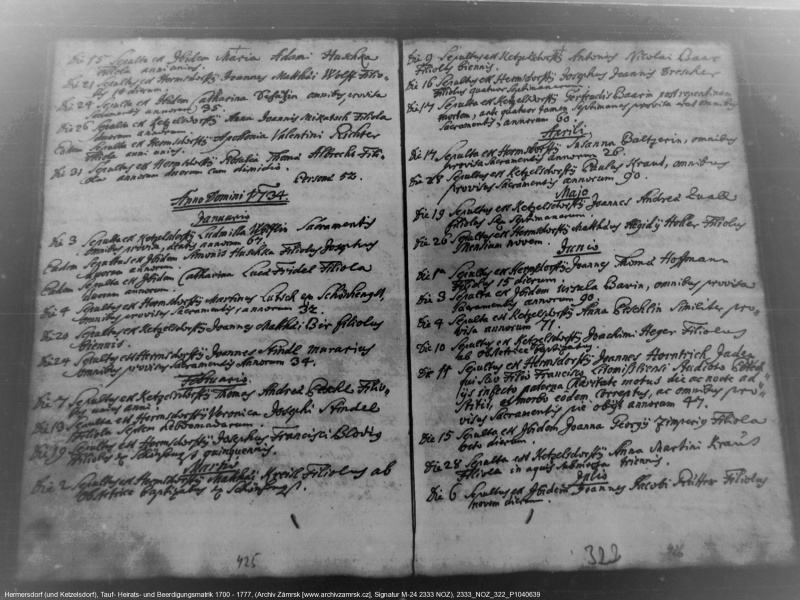 Die 15 Sepulta ex Ibidem Maria Adami Huschka
Filiola anni unius.
Die 21 Sepultus ex Hermsdorffij Joannes Matthaei Wolff Filio-
lus 10 dierum.
Die 24 Sepulta ex Ibidem Catharina omnibus provisa
Sacramentis annorum 35.
Die 26 Sepulta ex Ketzelsdorff Anna Joannis Filiola
annorum
Eadem Sepulta ex Hermsdorffij Apollonia Valentini Richter
Filiola anni unius.
Die 31 Sepulta ex Hermsdorffij Rosalia Thomae Albrecht Fili-
ola annorum duorum cum dimidio.
Personae 52.
Anno Domini 1734.
Januario
Die 3 Sepulta ex Ketzelsdorff Ludmilla Sacramentis
omnibus provisa, aetatis annorum 67.
Eadem Sepultus ex Ibidem Antonius Huschka Filiolus Josephus
annorum
Eadem Sepulta ex Ibidem Catharina Lucae Fridel Filiola
duorum annorum.
Die 4 Sepultus ex Hermsdorffij Martinus Lutsch ex
omnibus provisus Sacramentis annorum 32.
Die 20 Sepultus ex Ketzelsdorffij Joannes Matthaei Bir Filiolus
biennis.
Die 24 Sepultus ex Hermsdorffij Joannes Stindl murarius
omnibus provisus Sacramentis Annorum 34.
Februario
Die 7 Sepultus ex Ketzelsdorff Thomas Andreae Filio-
lus unius anni
Die 13 Sepulta ex Hermsdorffij Veronica Josephi Stindel
Filiola septem hebdomadarum.
Die 19 Sepultus ex Hermsdorffij Josephus Francisci
Filiolus quinquennis.
Martio
Die 2 Sepultus ex Hermsdorffij Matthaei Filiolus ab
obstetrice baptizatus
425
Die 9 Sepultus ex Ketzelsdorff Antonius Nicolai Baar
Filiolus biennis.
Die 16 Sepultus ex Hermsdorffij Josephus Joannis Brescher
Filiolus quatuor Septimanarum.
Die 17 Sepulta ex Ketzelsdorff Gertrudis Baarin post repentinam
mortem, ante quatuor tamen Septimanas provisa erat omnibus
Sacramentis, annorum 60.
Aprili
Die 14 Sepulta ex Hermsdorffij Susanna Baltzerin, omnibus
provisa Sacramentis annorum 26.
Die 28 Sepultus ex Ketzelsdorffij Paulus Kraus, omnibus
provisus Sacramentis annorum 90.
Majo
Die 19 Sepultus ex Ketzelsdorffij Joannes Andreae
Filiolus sex Septimanarum.
Die 26 Sepultus ex Hermsdorffij Matthaeus Aegidij Filiolus
Mensium novem.
Junio
Die 1 Sepultus ex Hermsdorffij Joannes Thomae Hoffmann
Filiolus 15 dierum.
Die 3 Sepulta ex Ibidem Ursula Bavin, omnibus provisa
Sacramentis annorum 90.
Die 4 Sepulta ex Ketzelsdorff Anna Similiter pro-
visa annorum 71.
Die 10 Sepultus ex Ketzelsdorffij Joachimi Heger Filiolus
ab obstetrice baptizatus
Die 11 Sepultus ex Hermsdorffij Joannes Horntrich
qui suo Filio Francisco Studioso
infecto Charitate motus die ac nocte ad-
stitit, et morbo eodem correptus, ac omnibus pro-
visus Sacramentis pie obijt annorum 47.
Die 15 Sepulta ex Ibidem Joanna Georgij Filiola
octo dierum.
Die 28 Sepulta ex Ketzelsdorffij Anna Martini Kraus
Filiola in aquis submersa triennis.
Julio
Die 6 Sepultus ex Ibidem Joannes Jacobi Filiolus
novem dierum.
322
Hermersdorf (und Ketzelsdorf), Tauf- Heirats- und Beerdigungsmatrik 1700 - 1777, (Archiv Zámrsk [www.archivzamrsk.cz], Signatur M-24 2333 NOZ), 2333_NOZ_322_P1040639